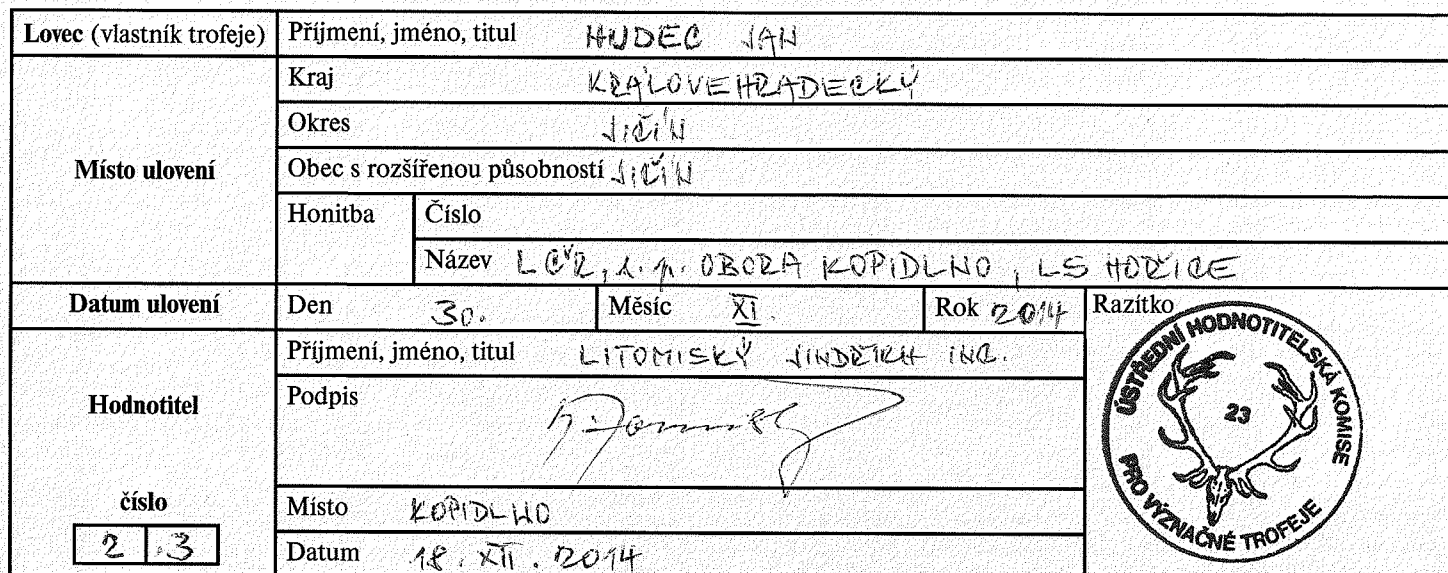 Lovec (vlastník trofeje) Příjmení, jméno, titul HUDEC JAN
Místo ulovení
Kraj KRÁLOVEHRADECKÝ
Okres JIČÍN
Obec s rozšířenou působností JIČÍN
Honitba Číslo
Název LČR, s.p. OBORA KOPIDLNO, LS HOŘICE
Datum ulovení Den 30. Měsíc XI. Rok 2014 Razítko
Hodnotitel
Příjmení, jméno, titul LITOMISKÝ JINDŘICH ING.
Podpis
číslo
2 3
Místo KOPIDLNO
Datum 18. XII. 2014
ÚSTŘEDNÍ HODNOTITELSKÁ KOMISE
23
PRO VÝZNAČNÉ TROFEJE